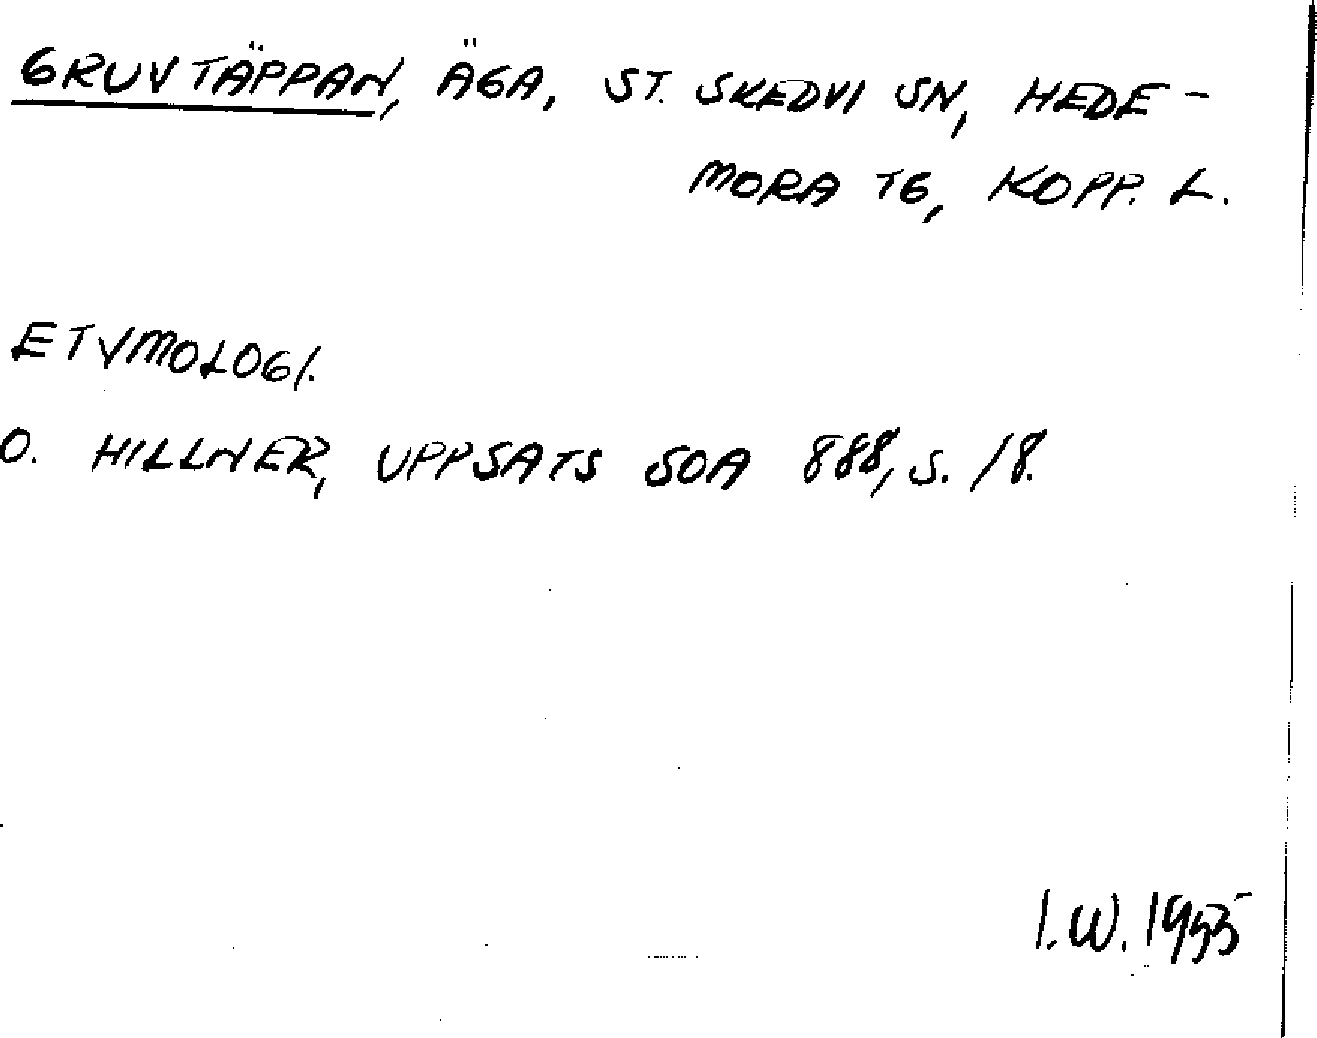 GRUVTÄPPAN, ÄGA, ST. SKEDVI SN, HEDE-
MORA TG, KOPP. L.
ETYMOLOGI.
O. HILLNER, UPPSATS SOA 888, S. 18.
I.W. 1955